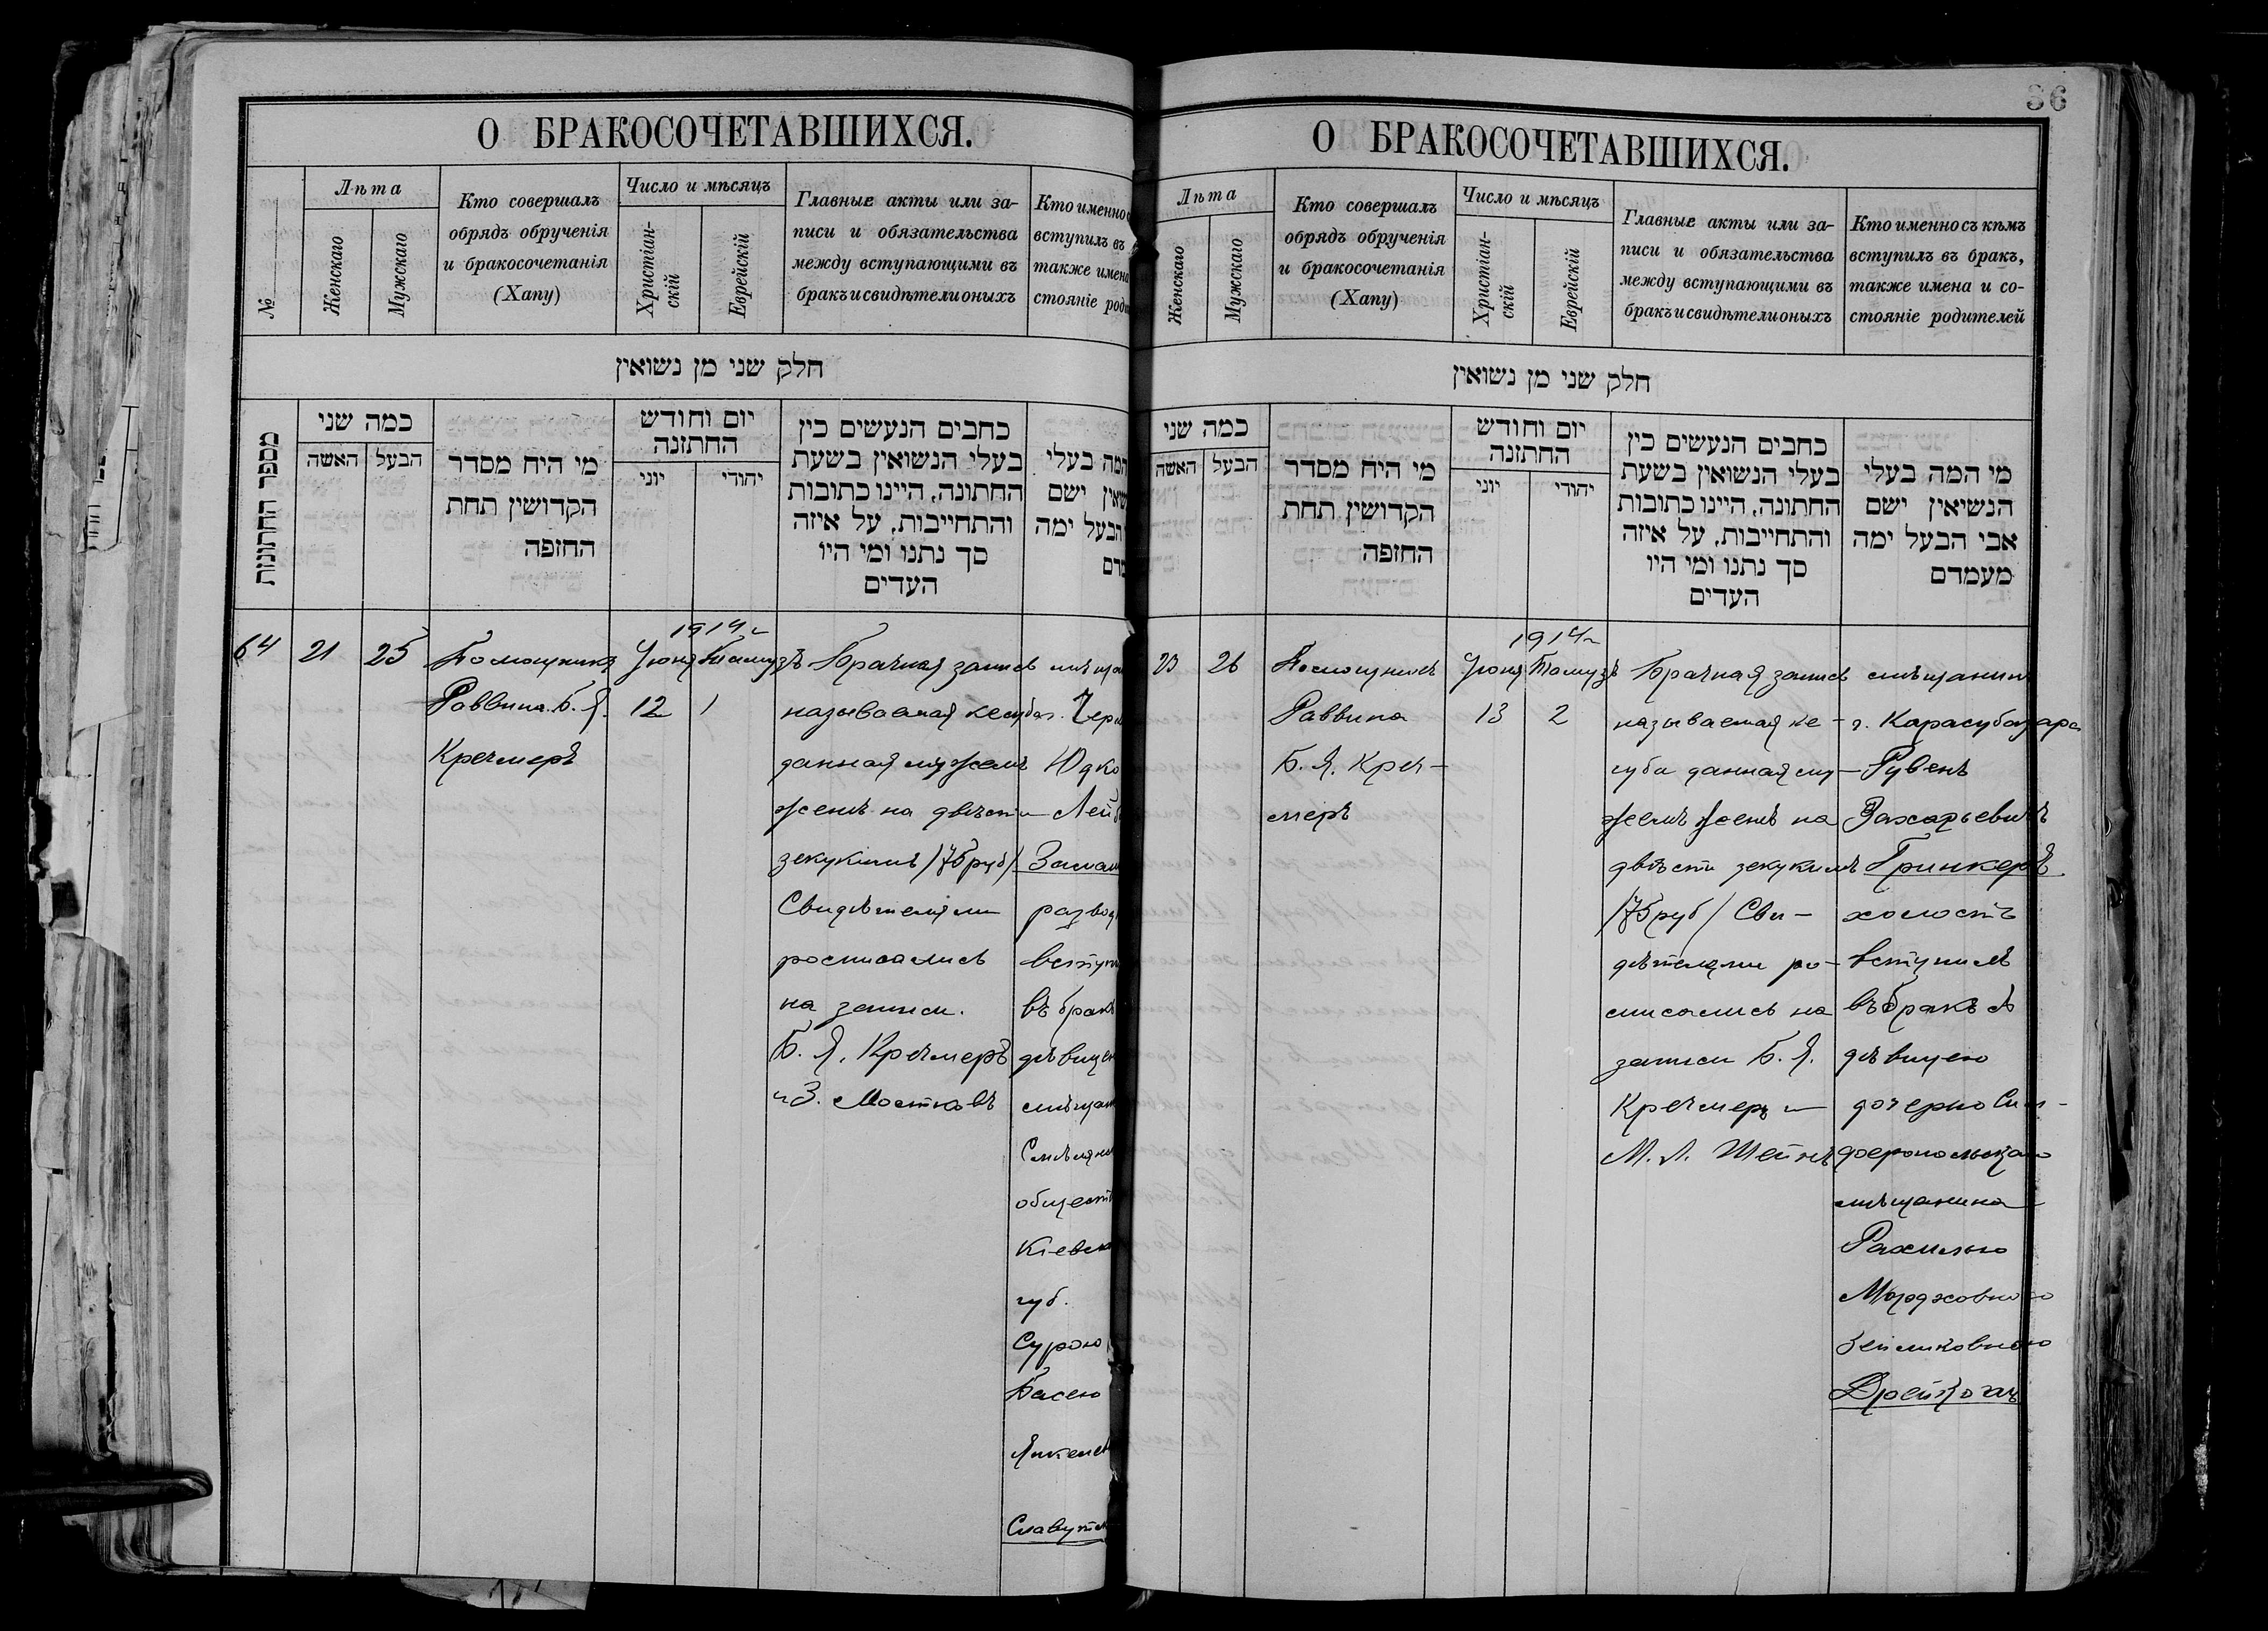 36
О БРАКОСОЧЕТАВШИХСЯ.
№
Лѣта
Женскаго
Мужскаго
Кто совершалъ
обрядъ обрученія
и бракосочетанія
(Хапу)
Число и мѣсяцъ
Христіан-
скій
Еврейскій
Главные акты или за-
писи и обязательства
между вступающими въ
бракъ и свидѣтели оныхъ
Кто именно
вступилъ въ
также имена
стояніе роди
חלק שני מן נשואין
מספר החתונות
כמה שני
האשה
הבעל
מי היח מסדר
הקדושין תחת
החופה
יום וחודש
החתונה
יוני
יהודי
כחבים הנעשים כין
בעלי הנשואין בשעת
החתונה, היינו כתובות
והתחייבות, על איזה
סך נתנו ומי היו
העדים
המה בעלי
שואין ישם
הבעל ימה
מדם
64
21
25
Помощникъ
Раввина Б. Я.
Кречмеръ
1914 г
Іюня
12
Тамузъ
1
Брачная запись
называемая кесуба
данная мужемъ
женѣ на двѣсти
зекукимъ /75 руб/
Свидѣтелями
росписались
на записи.
Б. Я. Кречмеръ
и З. Мостковъ
мѣщан
г. Чер
Юдко
Лей
Заслав
развод
вступи
въ бракъ
дѣвицею
мѣщан
Смѣлян
обществ
Кіевск
губ.
Сурою
Басею
Янкелев
Славутск
О БРАКОСОЧЕТАВШИХСЯ.
Лѣта
Женскаго
Мужскаго
Кто совершалъ
обрядъ обрученія
и бракосочетанія
(Хапу)
Число и мѣсяцъ
Христіан-
скій
Еврейскій
Главные акты или за-
писи и обязательства
между вступающими въ
бракъ и свидѣтели оныхъ
Кто именно съ кѣмъ
вступилъ въ бракъ,
также имена и со-
стояніе родителей
חלק שני מן נשואין
כמה שני
האשה
הבעל
מי היח מסדר
הקדושין תחת
החופה
יום וחודש
החתונה
יוני
יהודי
כחבים הנעשים כין
בעלי הנשואין בשעת
החתונה, היינו כתובות
והתחייבות, על איזה
סך נתנו ומי היו
העדים
מי המה בעלי
הנשיאין ישם
אבי הבעל ימה
מעמדם
23
26
Помощникъ
Раввина
Б. Я. Креч-
меръ
1914 г
Іюня
13
Тамузъ
2
Брачная запись
называемая ке-
суба данная му-
жемъ женѣ на
двѣсти зекукимъ
/75 руб/ Сви-
дѣтелями ро-
списались на
записи Б. Я.
Кречмеръ и
М. Л. Штейнъ
мѣщанинъ
г. Карасубазара
Рувенъ
Захарьевичъ
Гринкеръ
холостъ
вступилъ
въ бракъ съ
дѣвицею
дочерью Сим-
феропольскаго
мѣщанина
Рахилью
Мордковною
Зейликовною